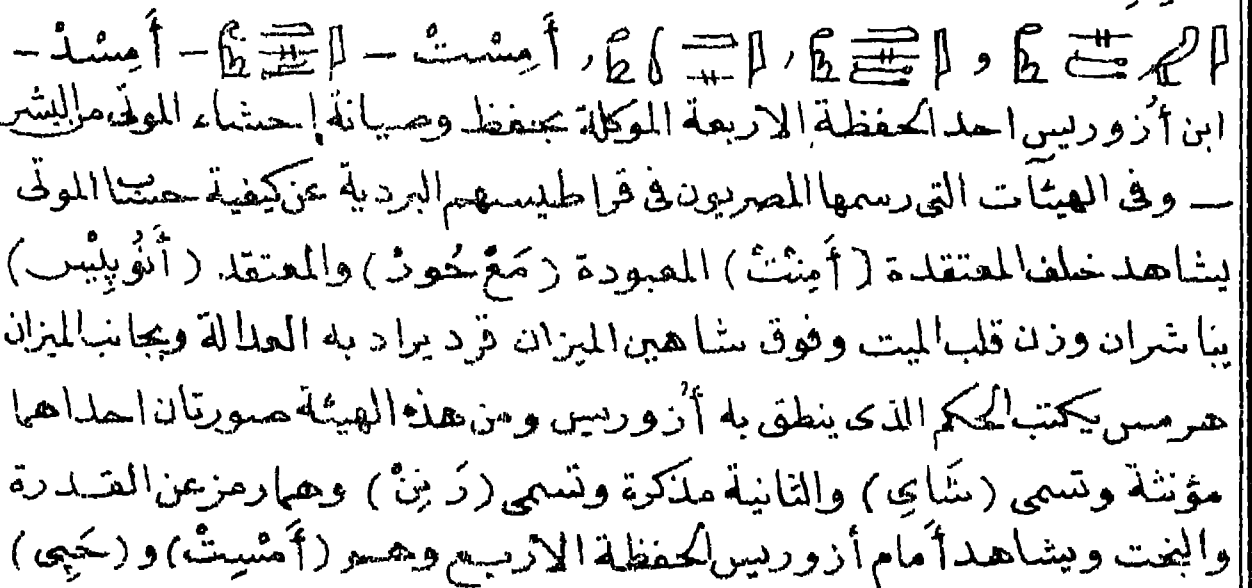 و ، ، أَمِسْتْ - - أَمِسْدْ -
ابن أُزوريس احد الحفظة الاربعة الموكلة بحفظ وصيانة إحشاء الموتى من البشر
— وفى الهيئات التى رسمها المصريون فى قراطيسهم البردية عن كيفية حساب الموتى
يشاهد خلف المعتقدة (أَمِنْتْ) المعبودة (مَعْ حُورْ) والمعتقد (أَنُوبِيْس)
يباشران وزن قلب الميت وفوق شاهين الميزان قرد يراد به العدالة وبجانب الميزان
هرمس يكتب الحكم الذى ينطق به أُزوريس ومن هذه الهيئة صورتان احداهما
مؤنثة وتسمى (شَاىِ) والثانية مذكرة وتسمى (رَنِنْ) وهما رمز عن القدرة
والبخت ويشاهد أمام أزوريس الحفظة الاربع وهم (أَمْسِتْ) و (حَپِى)